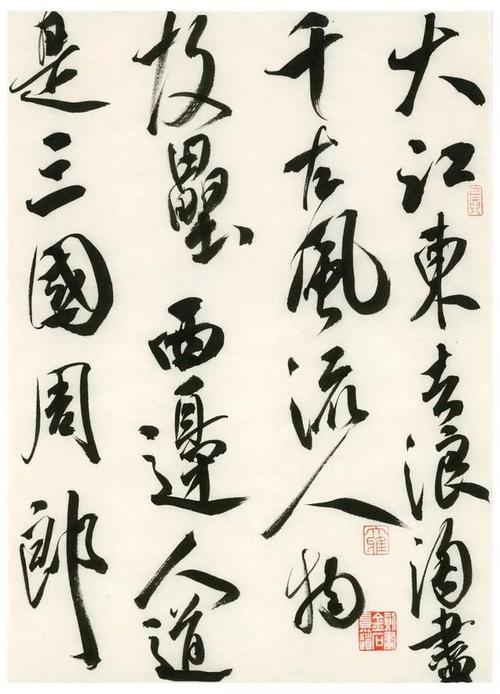 大江東去浪淘盡
千古風流人物
故壘西邊人道
是三國周郎